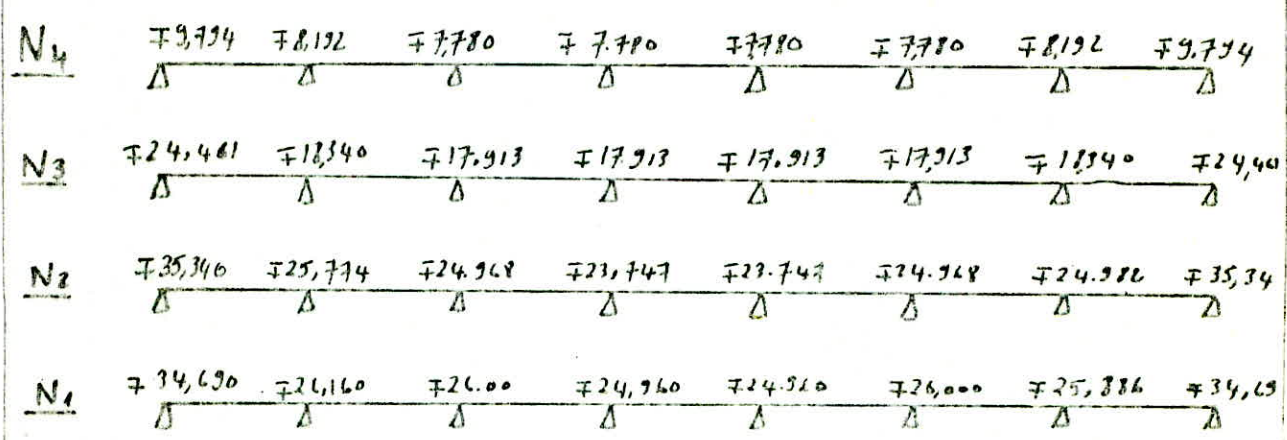 N4 ∓9,794 ∓8,192 ∓7,780 ∓7.780 ∓7,780 ∓7,780 ∓8,192 ∓9.794
N3 ∓24,461 ∓18,340 ∓17.913 ∓17.913 ∓17.913 ∓17,913 ∓18,340
N2 ∓35,340 ∓25,774 ∓24.968 ∓23,747 ∓23.747 ∓24.968 ∓24.982 ∓35,34
N1 ∓34,690 ∓26,160 ∓26.00 ∓24,960 ∓24.960 ∓26,000 ∓25,886 ∓34,69